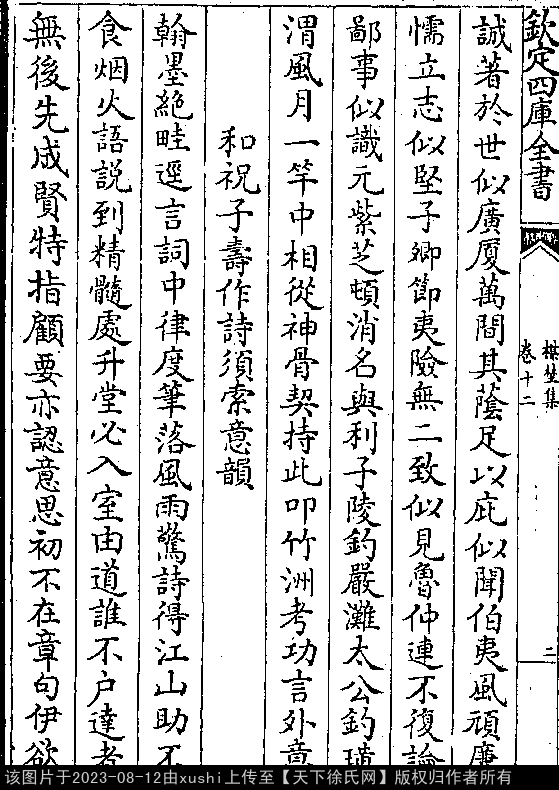 欽定四庫全書
楳埜集
卷十二
二
誠著於世似廣厦萬間其蔭足以庇似聞伯夷風頑廉
懦立志似堅子卿節夷險無二致似見魯仲連不復論
鄙事似識元紫芝頓消名與利子陵釣嚴灘太公釣璜
渭風月一竿中相從神骨契持此叩竹洲考功言外意
和祝子壽作詩須索意韻
翰墨絶畦逕言詞中律度筆落風雨驚詩得江山助不
食烟火語説到精髓處升堂必入室由道誰不户達者
無後先成賢特指顧要亦認意思初不在章句伊欲
该图片于2023-08-12由xushi上传至【天下徐氏网】版权归作者所有